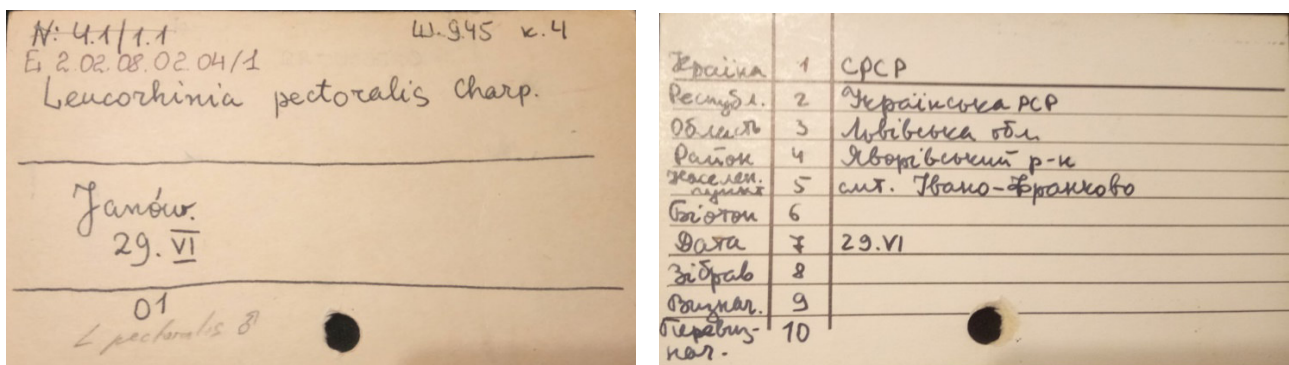 N: 4.1/1.1 Ш.945 к.4
E: 2.02.08.02.04/1
Leucorhinia pectoralis Charp.
Janów.
29. VI
01
L pectoralis ♂
Країна 1 СРСР
Республ. 2 Українська РСР
Область 3 Львівська обл.
Район 4 Яворівський р-н
Населен. пункт 5 смт. Івано-Франково
Біотоп 6
Дата 7 29.VI
Зібрав 8
Визнач. 9
Перевиз-
нач. 10